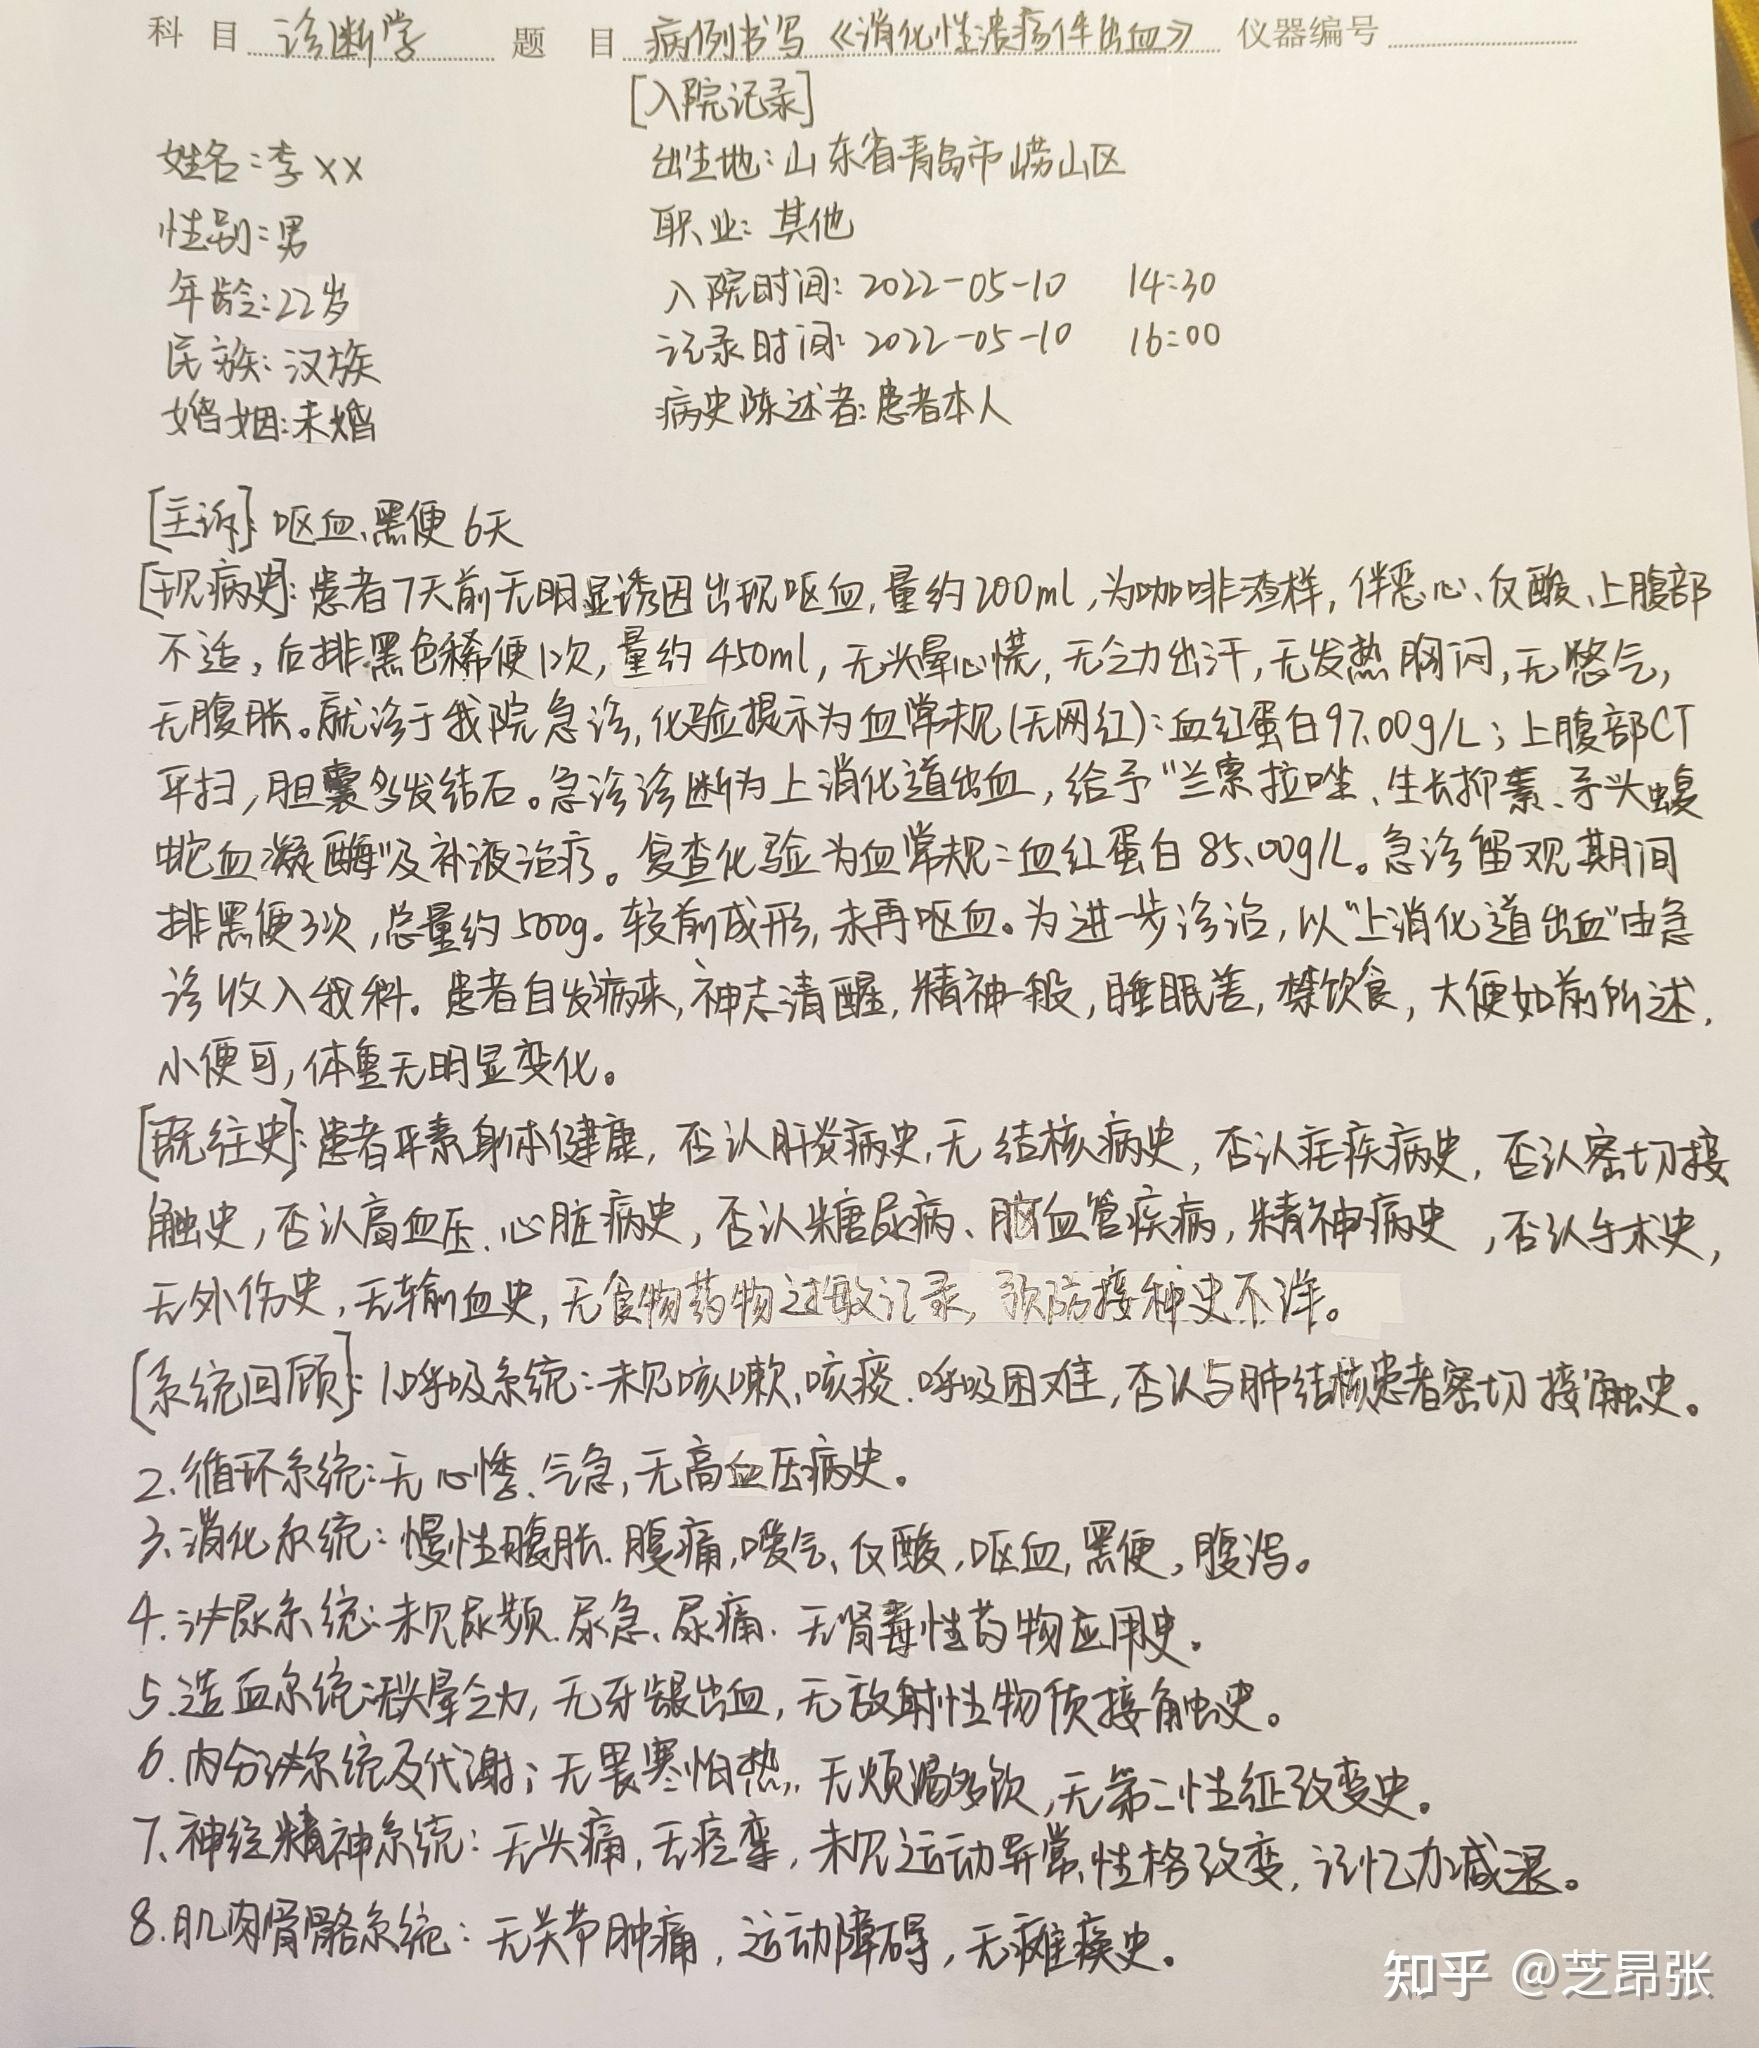 科 目 诊断学 题 目 病例书写《消化性溃疡伴出血》 仪器编号
[入院记录]
姓名:李×× 出生地:山东省青岛市崂山区
性别:男 职业:其他
年龄:22岁 入院时间:2022-05-10 14:30
民族:汉族 记录时间:2022-05-10 16:00
婚姻:未婚 病史陈述者:患者本人
[主诉]:呕血、黑便6天
[现病史]:患者7天前无明显诱因出现呕血,量约200ml,为咖啡渣样,伴恶心、反酸、上腹部
不适,后排黑色稀便1次,量约450ml,无头晕心慌,无乏力出汗,无发热胸闷,无憋气,
无腹胀。就诊于我院急诊,化验提示为血常规(无网红):血红蛋白97.00g/L;上腹部CT
平扫,胆囊多发结石。急诊诊断为上消化道出血,给予"兰索拉唑、生长抑素、矛头蝮
蛇血凝酶"及补液治疗。复查化验为血常规:血红蛋白85.00g/L。急诊留观期间
排黑便3次,总量约500g。较前成形,未再呕血。为进一步诊治,以"上消化道出血"由急
诊收入我科。患者自发病来,神志清醒,精神一般,睡眠差,禁饮食,大便如前所述,
小便可,体重无明显变化。
[既往史]:患者平素身体健康,否认肝炎病史,无结核病史,否认疟疾病史,否认密切接
触史,否认高血压、心脏病史,否认糖尿病、脑血管疾病,精神病史,否认手术史,
无外伤史,无输血史,无食物药物过敏记录,预防接种史不详。
[系统回顾]:1.呼吸系统:未见咳嗽、咳痰、呼吸困难,否认与肺结核患者密切接触史。
2.循环系统:无心悸、气急,无高血压病史。
3.消化系统:慢性腹胀、腹痛,嗳气、反酸,呕血,黑便,腹泻。
4.泌尿系统:未见尿频、尿急、尿痛、无肾毒性药物应用史。
5.造血系统:无头晕乏力,无牙龈出血,无放射性物质接触史。
6.内分泌系统及代谢:无畏寒怕热,无烦渴多饮,无第二性征改变史。
7.神经精神系统:无头痛,无痉挛,未见运动异常、性格改变,记忆力减退。
8.肌肉骨骼系统:无关节肿痛,运动障碍,无瘫痪史。
知乎 @芝昂张